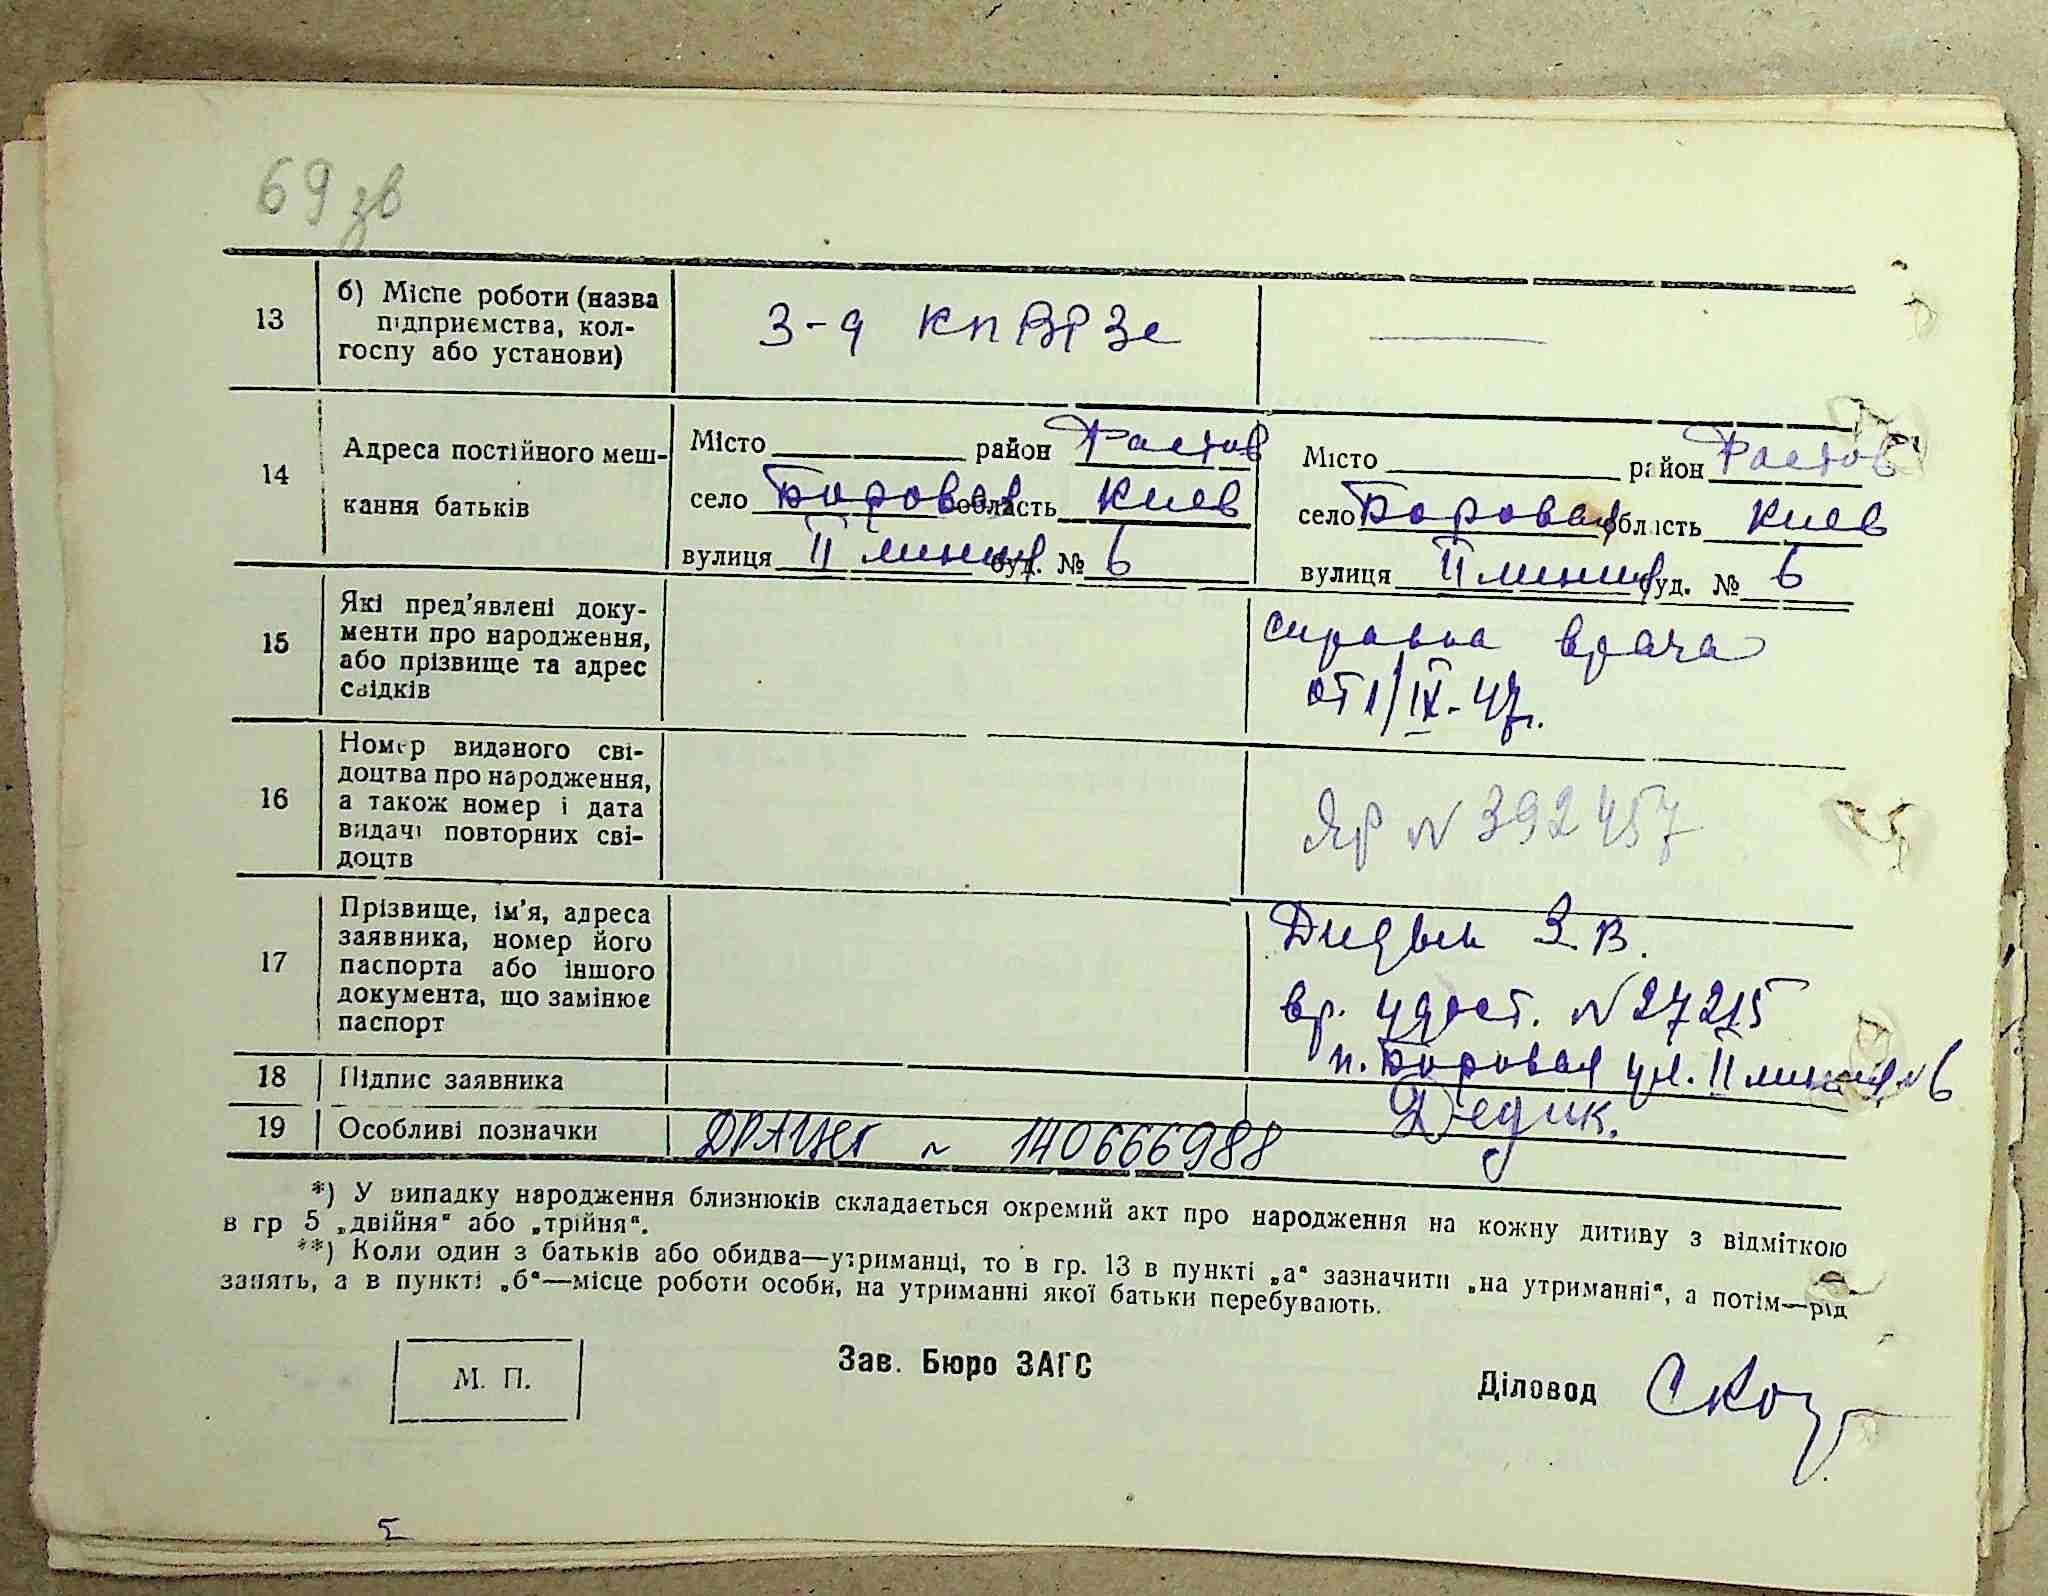 69 зв
13
б) Місце роботи (назва
підприємства, кол-
госпу або установи)
З-д КПВРЗе
14
Адреса постійного меш-
кання батьків
Місто район Фастов
село Боровая область Киев
вулиця II линия буд. № 6
Місто район Фастов
село Боровая область Киев
вулиця II линия буд. № 6
15
Які пред'явлені доку-
менти про народження,
або прізвище та адрес
свідків
справка врача
от 1/IX-47г.
16
Номер виданого сві-
доцтва про народження,
а також номер і дата
видачі повторних сві-
доцтв
ЯР N 392457
17
Прізвище, ім'я, адреса
заявника, номер його
паспорта або іншого
документа, що замінює
паспорт
З. В.
вр. удост. N 27215
п. Боровая ул. II линия N 6
18
Підпис заявника
Дедик.
19
Особливі позначки
ДРАЦСГ ~ 140666988
*) У випадку народження близнюків складається окремий акт про народження на кожну дитину з відміткою
в гр 5 „двійня“ або „трійня“.
**) Коли один з батьків або обидва—утриманці, то в гр. 13 в пункті „а“ зазначити „на утриманні“, а потім—рід
занять, а в пункті „б“—місце роботи особи, на утриманні якої батьки перебувають.
М. П.
Зав. Бюро ЗАГС
Діловод